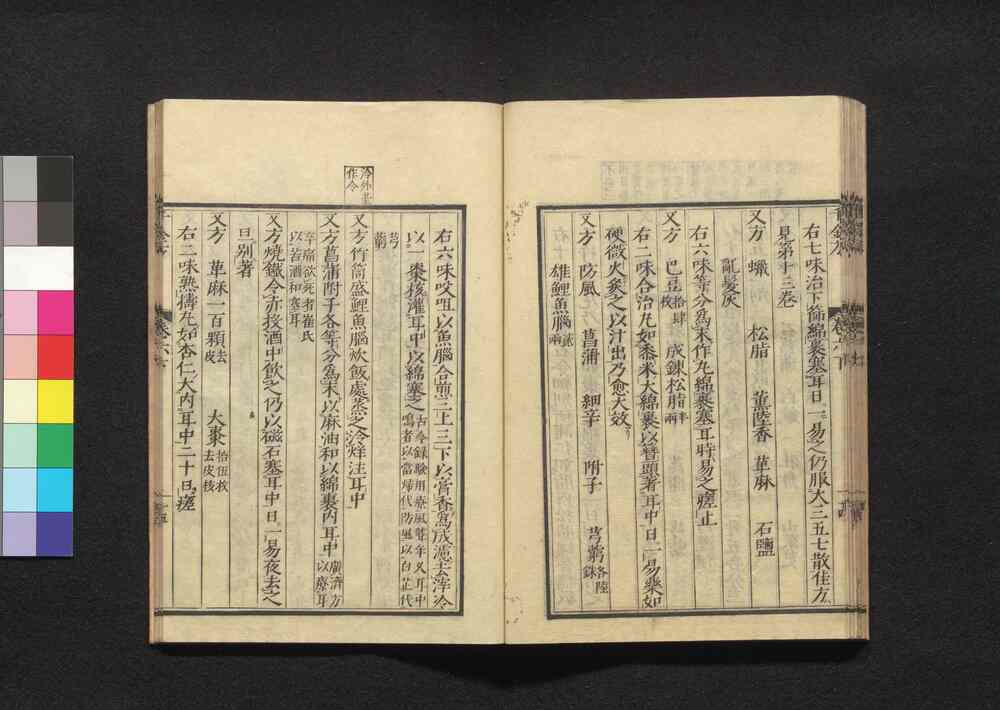 右七味治下篩綿裹塞耳日一易之仍服大三五七散佳方
見第十三卷
又方　蠟　松脂　薰陸香　萆麻　石鹽
亂髮灰
右六味等分爲末作丸綿裹塞耳時易之瘥止
又方　巴豆拾肆枚　成鍊松脂半兩
右二味合治丸如黍米大綿裹以簪頭著耳中日一易藥如
硬微火炙之以汁出乃愈大效
又方　防風　菖蒲　細辛　附子　芎藭各陸銖
雄鯉魚腦貳兩
右六味㕮咀以魚腦合煎三上三下以膏香爲成濾去滓冷
以一棗核灌耳中以綿塞之古今錄驗用療風聾年久耳中
鳴者以當歸代防風以白芷代
芎
藭
又方竹筒盛鯉魚腦炊飯處蒸之冷烊注耳中
又方菖蒲附子各等分爲末以麻油和以綿裹內耳中廣濟方
以療耳
卒痛欲死者崔氏
以苦酒和塞耳
又方燒鐵令赤投酒中飲之仍以磁石塞耳中日一易夜去之
旦別著
又方　萆麻一百顆去皮　大棗拾伍枚去皮核
右二味熟擣丸如杏仁大內耳中二十日瘥
冷外臺
作令
卷六